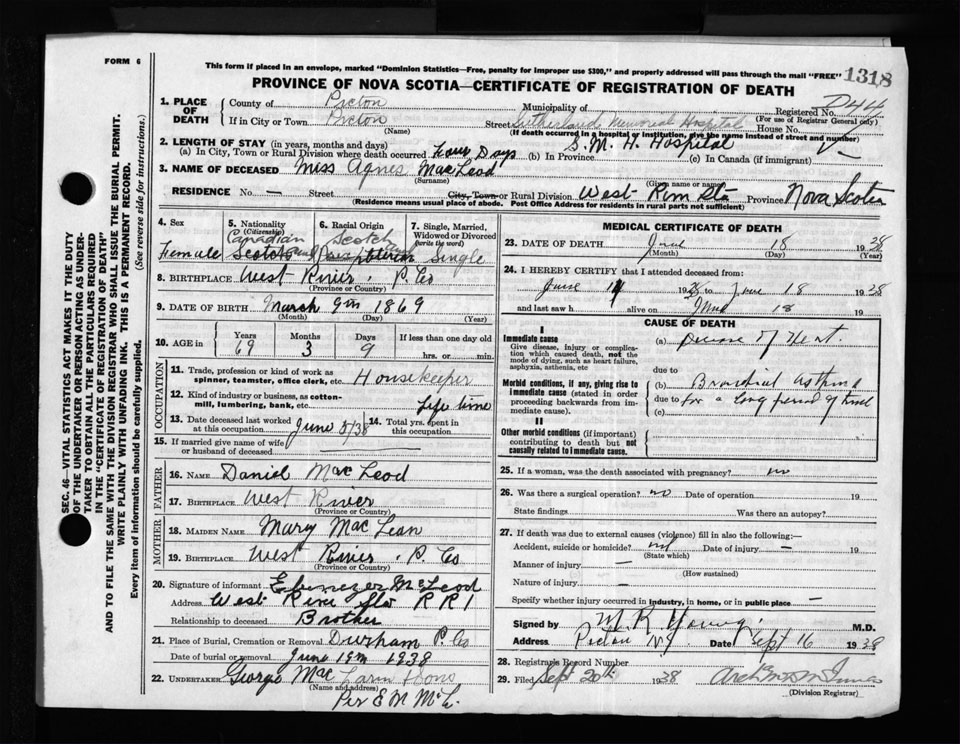 FORM 6
This form if placed in an envelope, marked "Dominion Statistics—Free, penalty for improper use $300," and properly addressed will pass through the mail "FREE"
1318
PROVINCE OF NOVA SCOTIA—CERTIFICATE OF REGISTRATION OF DEATH
SEC. 46—VITAL STATISTICS ACT MAKES IT THE DUTY
OF THE UNDERTAKER OR PERSON ACTING AS UNDER-
TAKER TO OBTAIN ALL THE PARTICULARS REQUIRED
IN THE "CERTIFICATE OF REGISTRATION OF DEATH"
AND TO FILE THE SAME WITH THE DIVISION REGISTRAR WHO SHALL ISSUE THE BURIAL PERMIT.
WRITE PLAINLY WITH UNFADING INK. THIS IS A PERMANENT RECORD.
Every item of information should be carefully supplied. (See reverse side for instructions.)
1. PLACE OF DEATH
County of Pictou Municipality of Registered No. D44
(For use of Registrar General only)
If in City or Town Pictou Street Sutherland Memorial Hospital House No.
(Name) (If death occurred in a hospital or institution, give the name instead of street and number)
2. LENGTH OF STAY (in years, months and days) S. M. H. Hospital
(a) In City, Town or Rural Division where death occurred Four Days (b) In Province (c) In Canada (if immigrant)
3. NAME OF DECEASED Miss Agnes MacLeod
(Surname) (Given name or names)
RESIDENCE No. — Street City, Town or Rural Division West River Sta Province Nova Scotia
(Residence means usual place of abode. Post Office Address for residents in rural parts not sufficient)
4. Sex Female
5. Nationality (Citizenship) Canadian
6. Racial Origin Scotch
7. Single, Married, Widowed or Divorced (write the word) Single
8. BIRTHPLACE West River, P. Co
(Province or Country)
9. DATE OF BIRTH March 9th 1869
(Month) (Day) (Year)
10. AGE in Years 69 Months 3 Days 9 If less than one day old hrs. or min.
OCCUPATION
11. Trade, profession or kind of work as spinner, teamster, office clerk, etc. Housekeeper
12. Kind of industry or business, as cotton-mill, lumbering, bank, etc. Life time
13. Date deceased last worked at this occupation June 8/38
14. Total yrs. spent in this occupation
15. If married give name of wife or husband of deceased
FATHER
16. NAME Daniel MacLeod
17. BIRTHPLACE West River
(Province or Country)
MOTHER
18. MAIDEN NAME Mary MacLean
19. BIRTHPLACE West River, P. Co
(Province or Country)
20. Signature of informant Ebenezer McLeod
Address West River Sta RR1
Relationship to deceased Brother
21. Place of Burial, Cremation or Removal Durham P. Co
Date of burial or removal June 19th 1938
22. UNDERTAKER George MacLaren & Sons
(Name and address)
Per E M McL.
MEDICAL CERTIFICATE OF DEATH
23. DATE OF DEATH June 18 1938
(Month) (Day) (Year)
24. I HEREBY CERTIFY that I attended deceased from:
June 14 1938 to June 18 1938
and last saw h alive on June 18 19
CAUSE OF DEATH
I
Immediate cause
Give disease, injury or complication which caused death, not the mode of dying, such as heart failure, asphyxia, asthenia, etc
(a) Disease of Heart.
due to
Morbid conditions, if any, giving rise to immediate cause (stated in order proceeding backwards from immediate cause).
(b) Bronchial asthma
due to for a long period of time
(c)
II
Other morbid conditions (if important) contributing to death but not causally related to immediate cause.
25. If a woman, was the death associated with pregnancy? no
26. Was there a surgical operation? no Date of operation 19
State findings Was there an autopsy?
27. If death was due to external causes (violence) fill in also the following:—
Accident, suicide or homicide? Date of injury — 19
(State which)
Manner of injury —
(How sustained)
Nature of injury —
Specify whether injury occurred in industry, in home, or in public place —
Signed by M. R. Young M.D.
Address Pictou N.S. Date Sept 16 1938
28. Registrar's Record Number
29. Filed Sept 20th 1938
(Division Registrar)